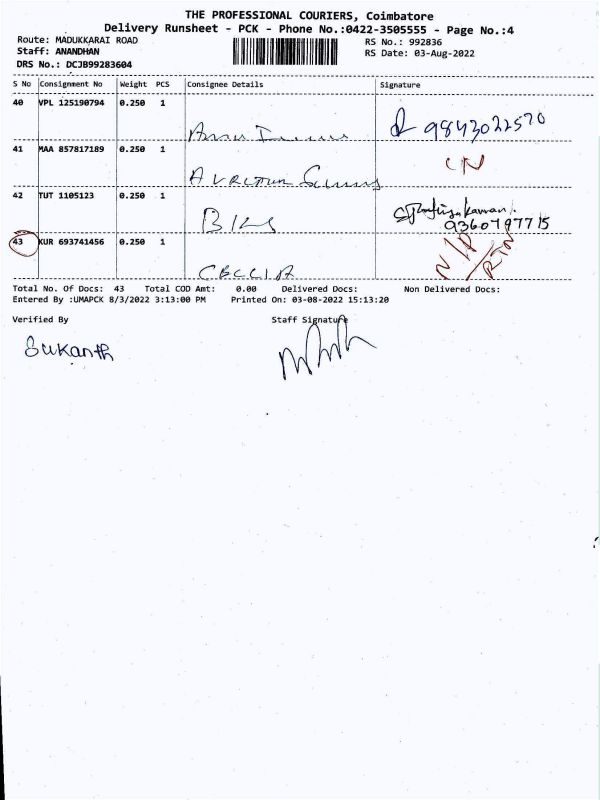 THE PROFESSIONAL COURIERS, Coimbatore
Delivery Runsheet - PCK - Phone No.:0422-3505555 - Page No.:4
Route: MADUKKARAI ROAD RS No.: 992836
Staff: ANANDHAN RS Date: 03-Aug-2022
DRS No.: DCJB99283604
S No Consignment No Weight PCS Consignee Details Signature
40 VPL 125190794 0.250 1
9843022570
41 MAA 857817189 0.250 1
42 TUT 1105123 0.250 1
9360797715
43 KUR 693741456 0.250 1 N/P
RTN
Total No. Of Docs: 43 Total COD Amt: 0.00 Delivered Docs: Non Delivered Docs:
Entered By :UMAPCK 8/3/2022 3:13:00 PM Printed On: 03-08-2022 15:13:20
Verified By Staff Signature
Sukanth